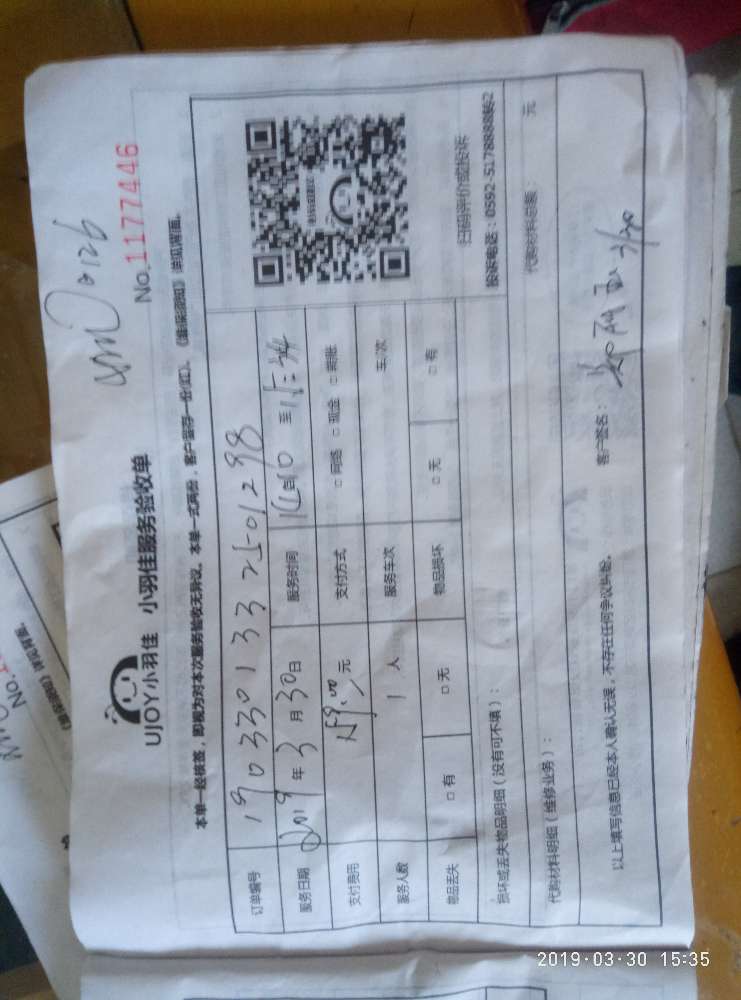 UJOY小羽佳 小羽佳服务验收单
No.1177446
本单一经核签，即视为对本次服务验收无异议。本单一式两份，客户留存一份(红)。《维保须知》详见背面。
订单编号 1903301332501298
服务日期 2019年3月30日 服务时间 至
支付费用 元 支付方式 □网络 □现金 □期账
服务人数 1人 服务车次 车/次
物品丢失 □有 □无 物品损坏 □无 □有
扫码评价或投诉
投诉电话：0592-5178888转2
损坏或丢失物品明细（没有可不填）：
代购材料明细（维修业务）： 代购材料总额： 元
以上填写信息已经本人确认无误，不存在任何争议纠纷。 客户签名： 3/30
No.
2019·03·30 15:35